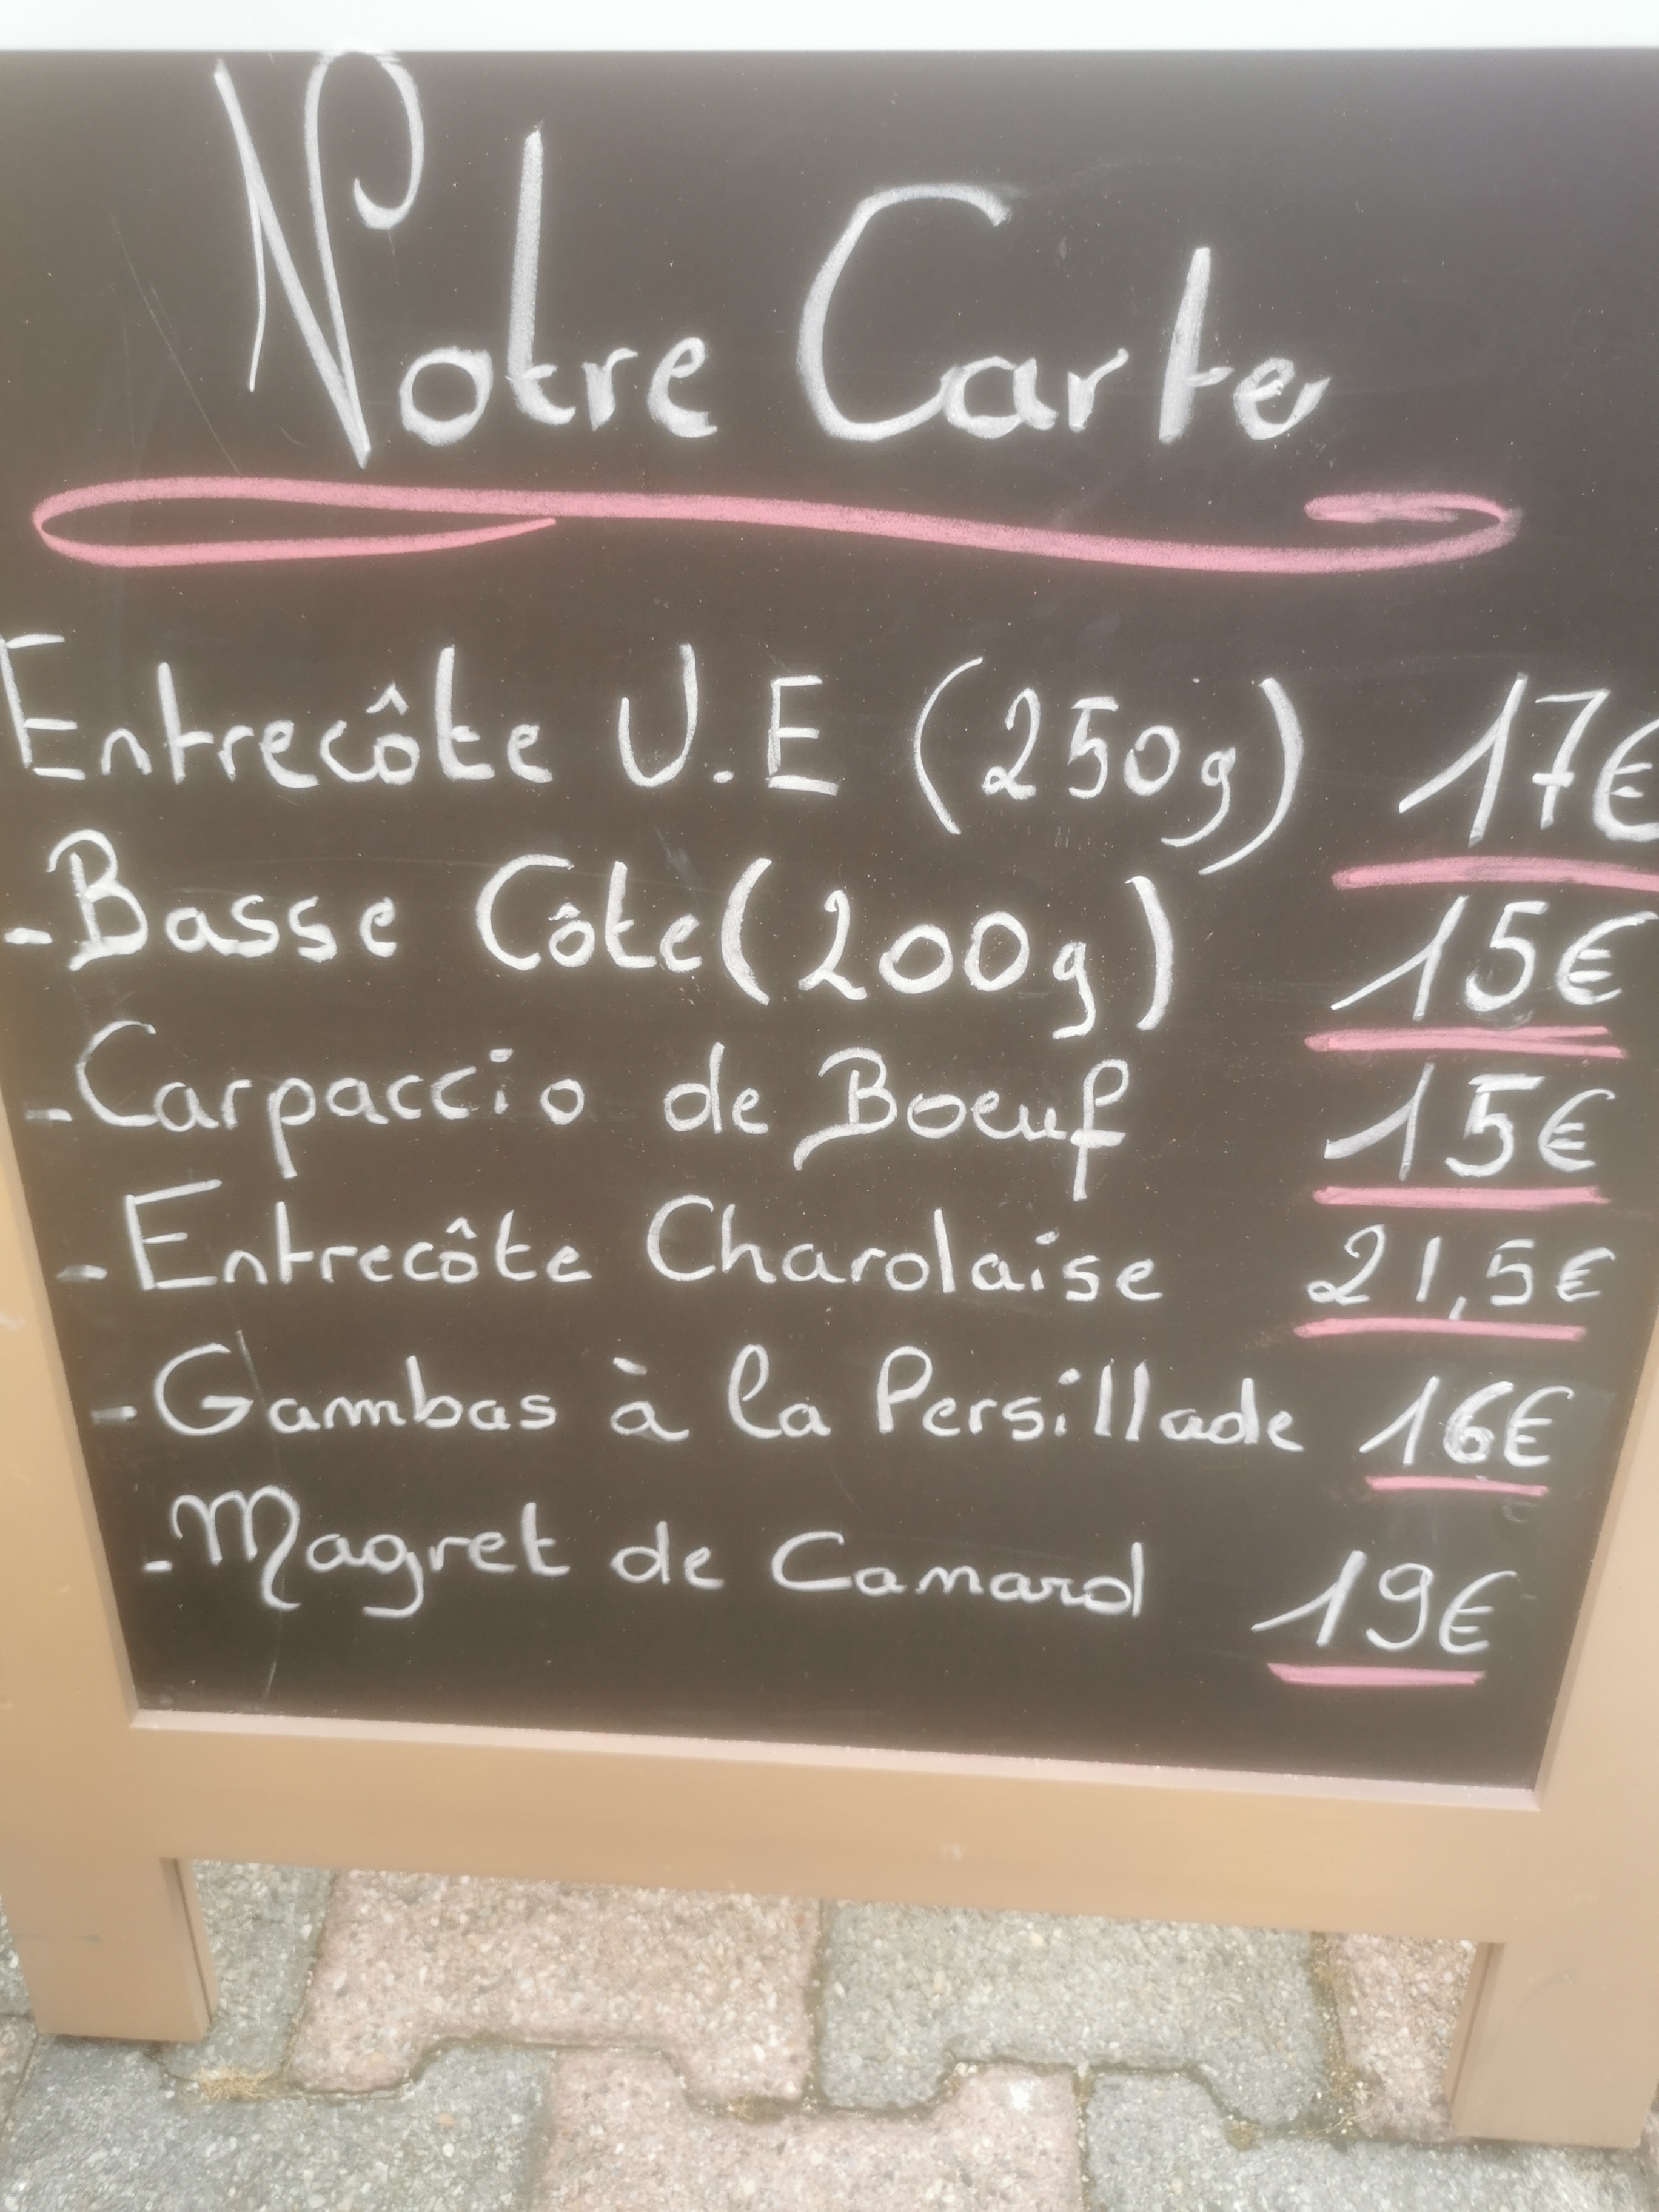 Notre Carte
Entrecôte U.E (250g) 17€
- Basse Côte (200g) 15€
- Carpaccio de Boeuf 15€
- Entrecôte Charolaise 21,5€
- Gambas à la Persillade 16€
- Magret de Canard 19€